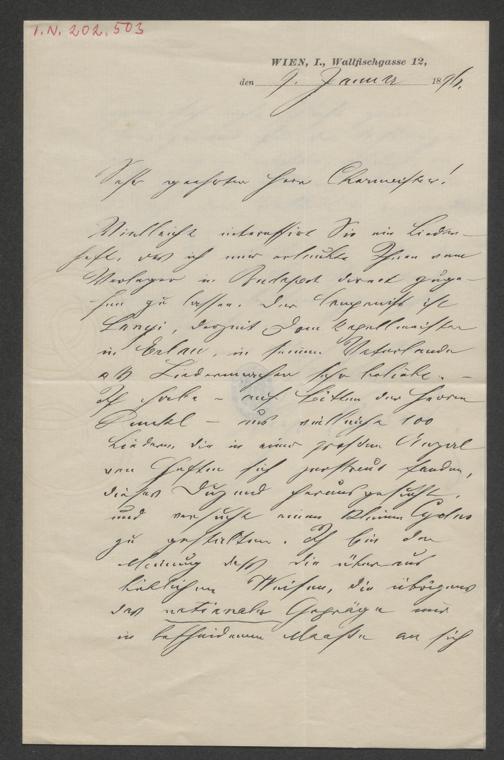 I.N. 202.503
WIEN, I., Wallfischgasse 12,
den 9. Januar 1896.
Sehr geehrter Herr Chormeister!
Vielleicht interessirt Sie ein Lieder-
heft, das ich mir erlaubte Ihnen vom
Verleger in Budapest direct zuge-
hen zu lassen. Der Componist ist
Lányi, derzeit Domkapellmeister
in Erlau, in seinem Vaterlande
als Liedermacher sehr beliebt. –
Ich habe – auf Bitten des Herrn
– aus vielleicht 100
Liedern, die in einer großen Anzahl
von Heften sich zerstreut fanden,
dieses Dutzend herausgesucht,
und versucht einen kleinen Cyclus
zu gestalten. Ich bin der
Meinung daß die überaus
lieblichen Weisen, die übrigens
das nationale Gepräge nur
in bescheidenem Maaße an sich